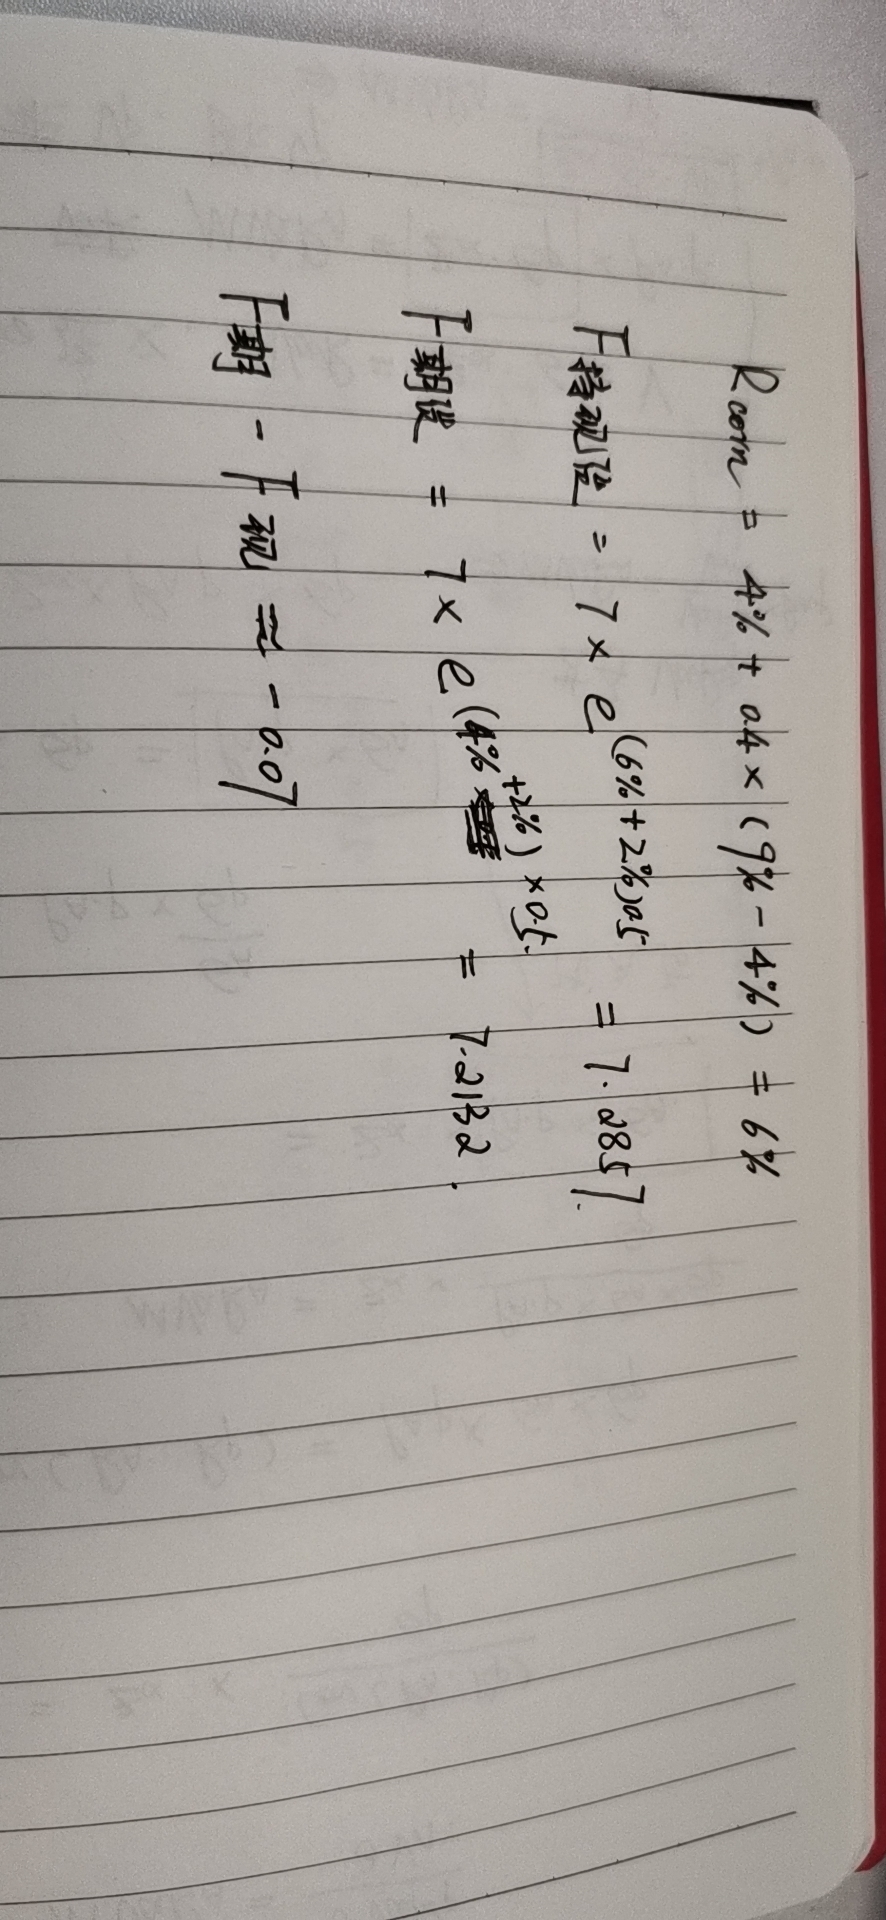 Rcorn = 4% + 0.4 × (9% - 4%) = 6%
F持现货 = 7 × e^(6%+2%)0.5 = 7.2857.
F期货 = 7 × e^(4%+2%)×0.5. = 7.2132.
F期 - F现 ≈ -0.07